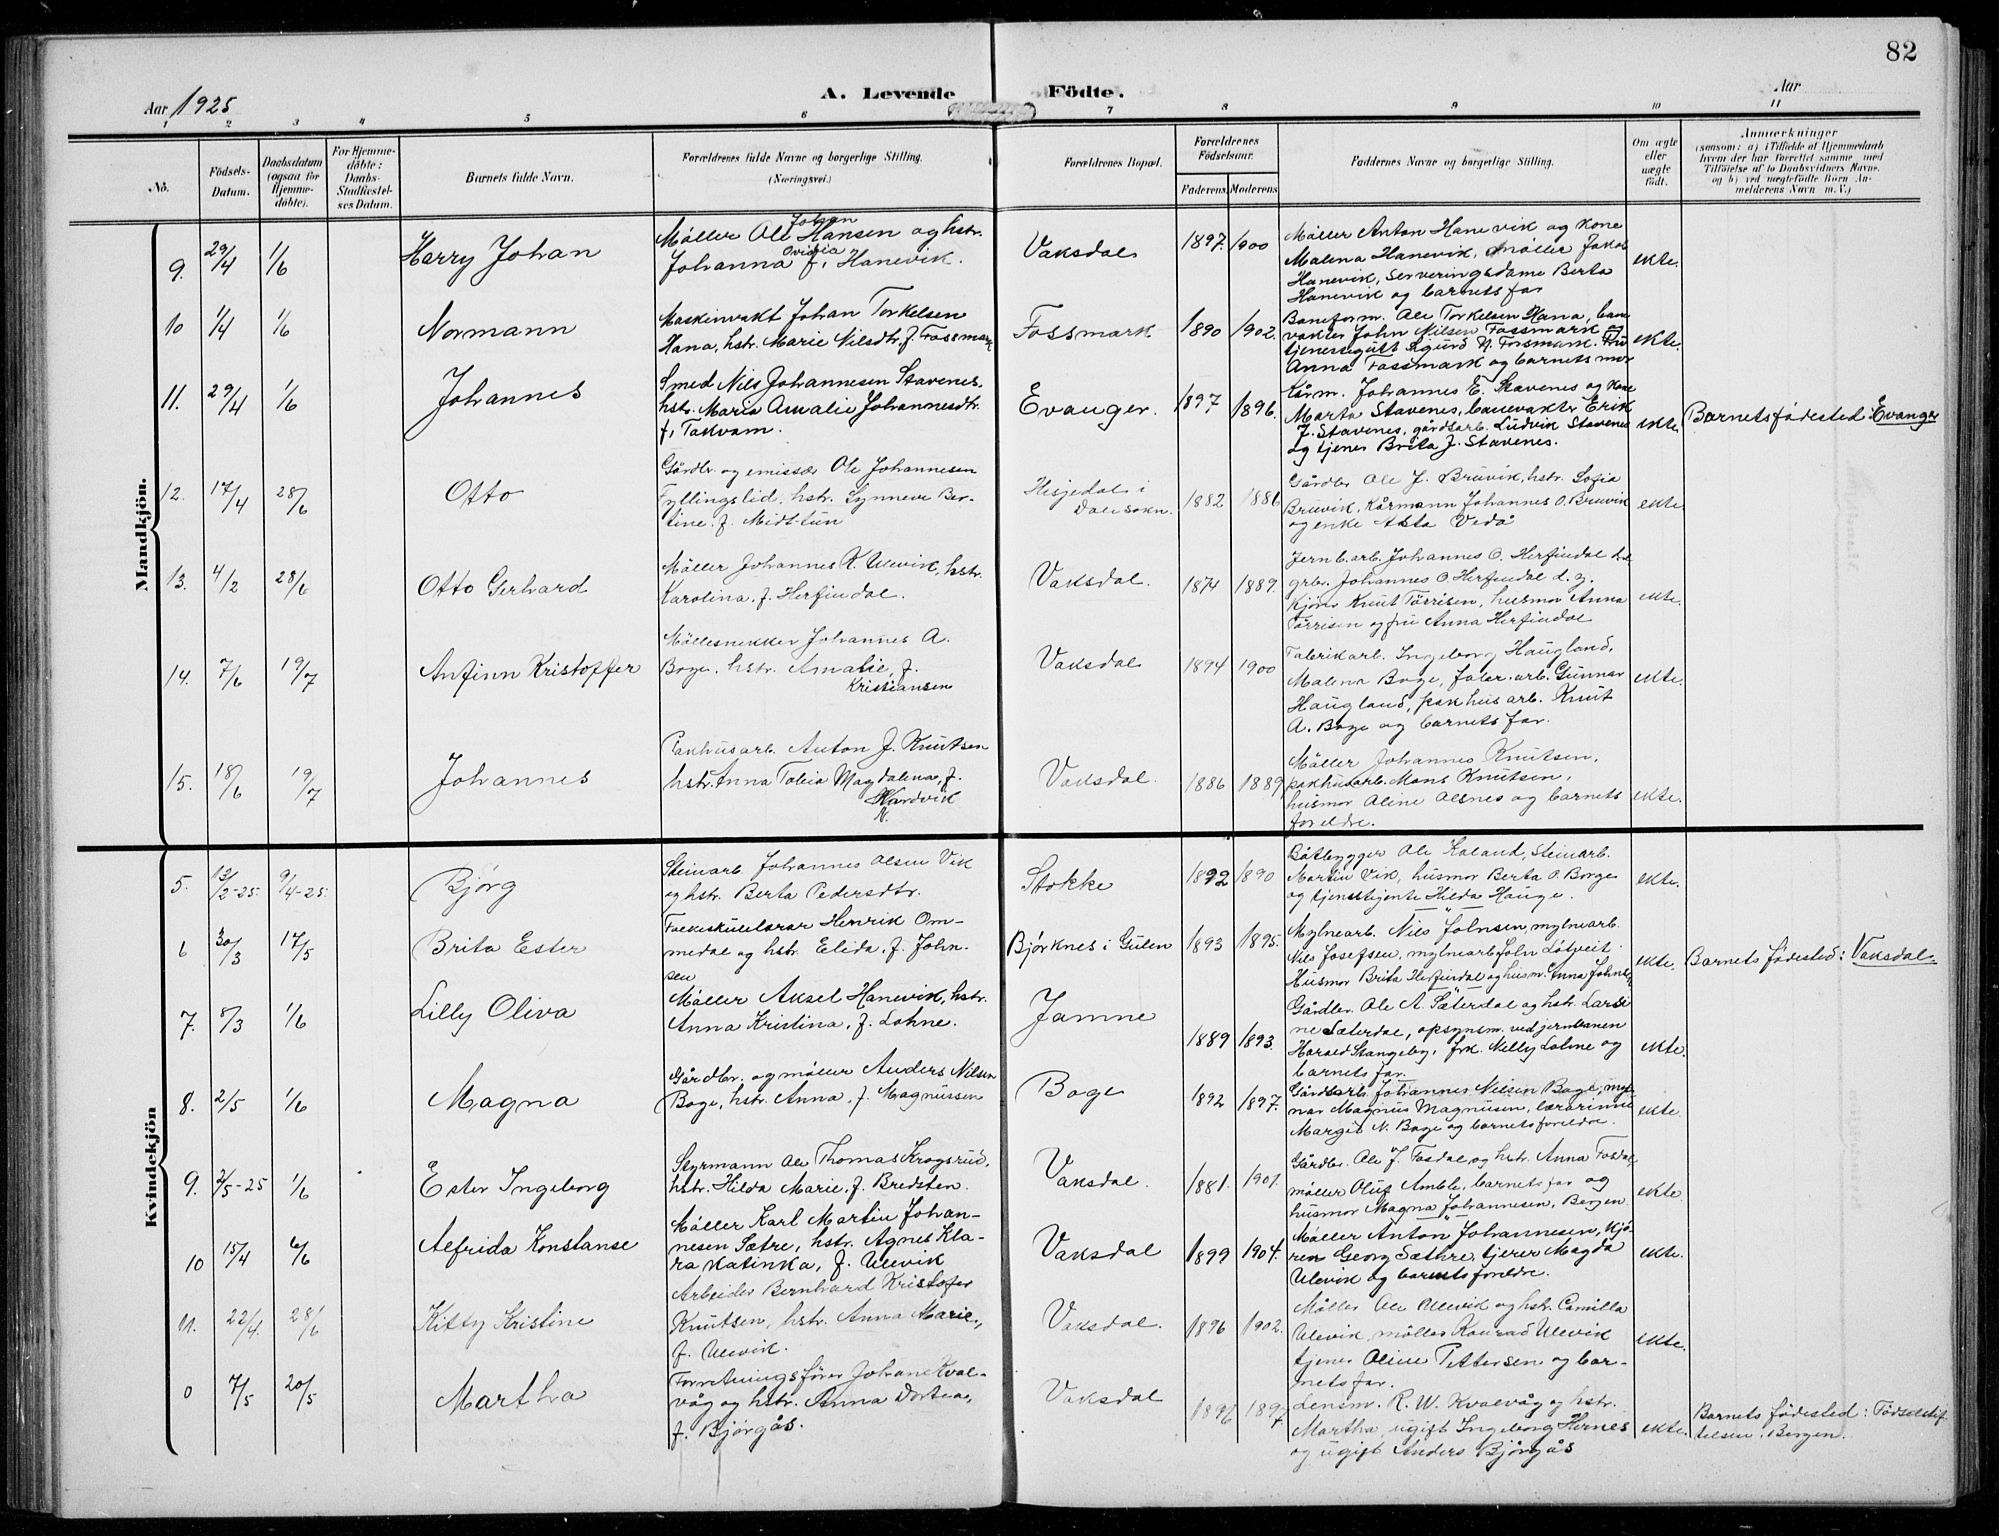 82
Aar 1925
A. Levende Födte.
Aar
1 2 3 4 5 6 7 8 9 10 11
No.
Födsels-Datum.
Daabsdatum (ogsaa for Hjemmedöbte).
For Hjemmedöbte: Daabs-Stadfæstelses Datum.
Barnets fulde Navn.
Forældrenes fulde Navne og borgerlige Stilling.
(Næringsvei.)
Forældrenes Bopæl.
Forældrenes Födselsaar.
Faderens. Moderens.
Faddernes Navne og borgerlige Stilling.
Om ægte eller uægte födt.
Anmærkninger
(saasom: a) i Tilfælde af Hjemmedaab hvem der har forrettet samme, med Tilföielse af to Daabsvidners Navne, og b) ved uægtefödte Börn Anmelderens Navn m. V.)
Mandkjön.
9. 29/4 1/6 Harry Johan
Møller Ole Johan Hansen og hstr.
Johanna Ovidia f. Hanevik.
Vaksdal 1897. 1900
Møller Anton Hanevik og kone
Malena Hanevik, møller Jakob
Hanevik, Serveringsdame Berta
Hanevik og barnets far
ekte.
10 1/4 1/6 Normann
Maskinvakt Johan Torkelsen
Hana, hstr. Marie Nilsdtr, f. Fossmark
Fossmark 1890 1902.
Baneform. Ole Torkelsen Hana, bane
vakter John Nilsen Fossmark og
tjenestegutt Sigurd N. Fossmark. Fru
Anna Fossmark og barnets mor
ekte.
11. 29/4 1/6 Johannes
Smed Nils Johannesen Stavenes,
hstr. Maria Amalie Johannesdtr.
f. Takvam.
Evanger. 1897 1896.
Kårm. Johannes E. Stavenes og kone
Marta Stavenes, banevakter Erik
J. Stavenes, gårdsarb. Ludvik Stavenes
og tjener Brita J. Stavenes.
ekte. Barnets fødested: Evanger
12. 17/4 28/6 Otto
Gårdbr. og emissær Ole Johannesen
Fyllingslid, hstr. Synneve Ber-
tine. f. Midttun
Hisjedal i
Dale sokn. 1882 1886
Gårdbr Ole J. Bruvik, hstr. Sofia
Bruvik, Kårmann Johannes O. Bruvik
og enke Asta Vedå
ekte.
13. 4/2 28/6 Otto Gerhard
Møller Johannes K. Ulevik, hstr.
Karolina, f. Herfindal.
Vaksdal. 1874 1887.
Jernb.arb. Johannes O. Herfindal d.e.
grbr. Johannes O. Herfindal d. y.
kjører Knut Tørrisen, husmor Anna
Tørrisen og fru Anna Herfindal
ekte.
14. 7/6 19/7 Anfinn Kristoffer
Møllesnekker Johannes A.
Boge. hstr. Amalie, f.
Kristiansen
Vaksdal 1894 1900
Fabrikarb. Ingeborg Haugland,
Malena Boge, fabr. arb. Gunnar
Haugland, pakhusarb. Knut
A. Boge og barnets far.
ekte.
15. 18/6 19/7 Johannes
Pakhusarb. Anton J. Knutsen
hstr. Anna Tobia Magdalena, f.
Vaksdal. 1886 1889
Møller Johannes Knutsen,
pakhusarb. Mons Knutsen,
husmor Oline Olsnes og barnets
foreldre.
ekte.
Kvindekjön
5. 13/2-25. 9/4-25. Bjørg
Steinarb Johannes Olsen Vik
og hstr. Berta Pedersdtr.
Stokke 1892 1890
Båtbygger Ole Kaland, Steinarb.
Martin Vik, husmor Berta O. Borge
og tjenestejente Hilda Hauge.
ekte.
6 30/3 17/5 Brita Ester
Folkeskulelærar Henrik Om-
medal og hstr. Elida, f. John-
sen
Bjørknes i Gulen 1893 1895.
Mylnearb. Nils Johnsen, mylnearb.
Nils Josefsen, mylnearb John Løtveit.
Husmor Brita Herfindal og husm. Anna Johnsen
ekte. Barnets fødested: Vaksdal.
7. 8/3 1/6 Lilly Oliva
Møller Aksel Hanevik, hstr.
Anna Kristina, f. Lohne.
Jamne 1889 1893.
Gårdbr. Ole A. Sæterdal og hstr. Larsi
ne Sæterdal, opsynsm. ved jernbanen
Harald Stangeby, frk. Nelly Lohne og
barnets far.
ekte.
8. 2/5 1/6 Magna
Gårdbr. og møller Anders Nilsen
Boge, hstr. Anna, f. Magnussen
Boge 1892 1897.
Gårdsarb. Johannes Nilsen Boge, myl
nar Magnus Magnusen, lærarinne
Margit N. Boge og barnets foreldre.
ekte.
9. 2/5-25 1/6 Ester Ingeborg
Styrmann Ole Thomas Krogsrud,
hstr. Hilda Marie, f. Bredsten.
Vaksdal. 1881. 1901.
Gårdbr. Ole J. Fosdal, og hstr. Anna Fosdal,
møller Oluf Amble, barnets far og
husmor Magna Johannesen, Bergen.
ekte
10 15/4 6/6 Alfrida Konstanse
Møller Karl Martin Johan-
nesen Sætre, hstr. Agnes Kla-
ra Katinka, f. Ulevik
Vaksdal 1899 1904.
Møller Anton Johannesen, kjø-
ren Georg Sæthre, tjener Magda
Ulevik og barnets foreldre.
ekte.
11. 22/4. 28/6 Kitty Kristine
Arbeider Bernhard Kristofer
Knutsen, hstr. Anna Marie,
f. Ulevik.
Vaksdal. 1896 1902.
Møller Ole Ulevik og hstr. Camilla
Ulevik, møller Konrad Ulevik
tjener Oline Pettersen og bar-
nets far.
ekte.
0 7/5 20/5 Martha
Forretningsfører Johan Kval-
våg og hstr. Anna Dortea,
f. Bjørgås.
Vaksdal 1896 1897.
Lensm. R. W. Kvalvåg og hstr.
Martha, ugift Ingeborg Hernes
og ugift Anders Bjørgås
ekte. Barnets fødested: Fødselstif
telsen i Bergen.